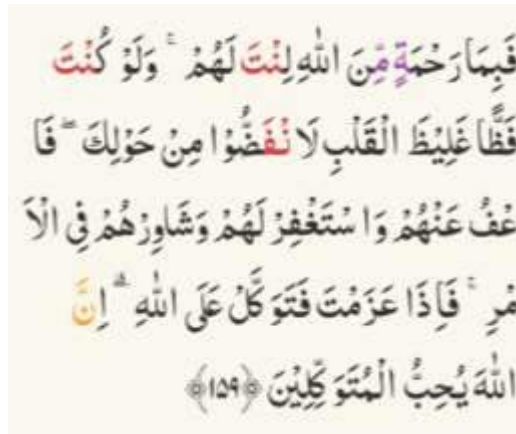 فَبِمَا رَحْمَةٍ مِّنَ اللّٰهِ لِنْتَ لَهُمْ ۚ وَلَوْ كُنْتَ
فَظًّا غَلِيْظَ الْقَلْبِ لَا نْفَضُّوْا مِنْ حَوْلِكَ ۖ فَا
عْفُ عَنْهُمْ وَا سْتَغْفِرْ لَهُمْ وَشَاوِرْهُمْ فِى الْاَ
مْرِ ۚ فَاِذَا عَزَمْتَ فَتَوَكَّلْ عَلَى اللّٰهِ ۗ اِنَّ
اللّٰهَ يُحِبُّ الْمُتَوَكِّلِيْنَ ﴿۱۵۹﴾